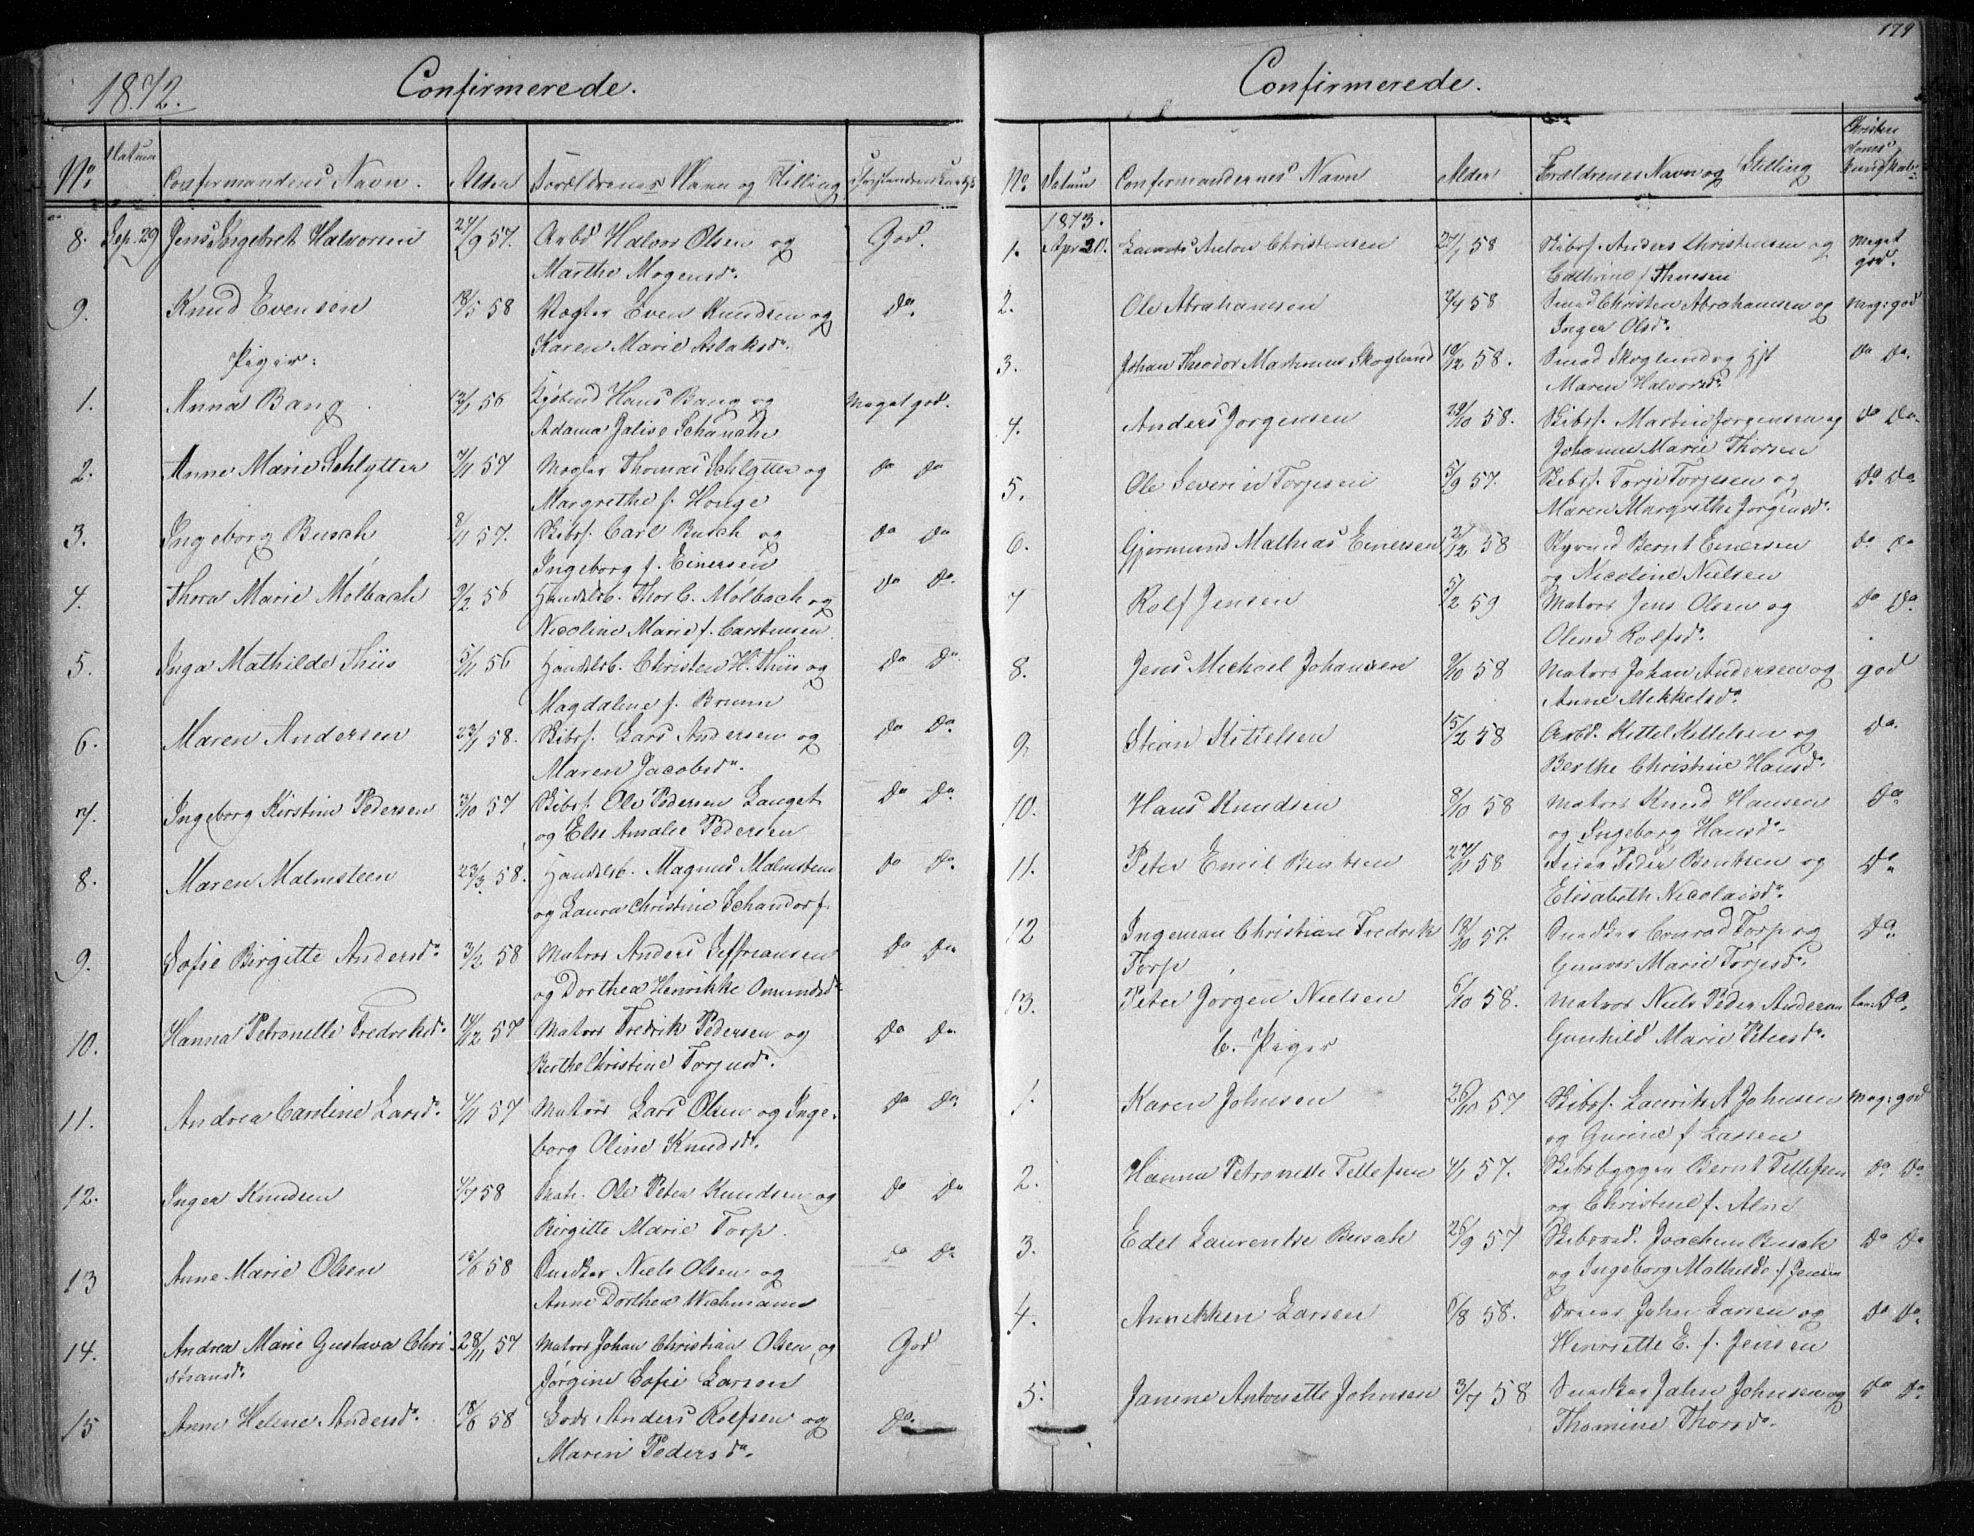 1872.
Confirmerede.
No. Datum Confirmandens Navn. Alder Forældrenes Navn og Stilling
8. Sep. 29 Jens Ingebret Halvorsen 24/9 57. Arbd Halvor Olsen og God.
Marthe Mogensd.
9. Knud Evensen 18/5 58 Even Knudsen og Do.
Karen Marie Aslaksd.
Piger:
1. Anna Bang 56 Hans Bang og Meget god.
Adama Schanche
2. Anne Marie Schlytter 57 Mægler Thomas Schlytter og Do Do
Margrethe f. Houge
3. Ingeborg Busch 8/11 57. Skibsf. Carl Busch og Do Do
Ingeborg f. Einersen
4. Thora Marie Mølbach 9/2 56 Handelsb. Thor C. Mølbach og Do Do.
Nicoline Marie f. Carstensen
5. Inga Mathilde Thiis 5/11 56 Handelsb. Christen H. Thiis og Do Do.
Magdaline f. Bruun
6. Maren Andersen 23/1 58. Skibsf. Lars Andersen og Do Do.
Maren Jacobsd.
7. Ingeborg Kirstine Pedersen 3/10 57 Skibsf. Ole Pedersen Langet Do Do.
og Else Amalie Pedersen
8. Maren Malmsteen 23/3. 58. Handelsb. Magnus Malmsteen Do Do
og Laura Christine Schandorf.
9. Sofie Birgitte Andersd. 3/2 58 Matros Anders Do Do
og Dorthea Henrikke Omundsd.
10. Hanna Petronelle Fredriksd. 14/12 57 Matros Fredrik Pedersen og Do Do
Berthe Christine
11. Andrea Caroline Larsd. 4/11 57 Matros Lars Olsen og Inge- Do Do
borg Oline Knudsd.
12. Inger Knudsen 4/7 58 Mats. Ole Peter Knudsen og Do Do
Birgitte Marie Torp.
13 Anne Marie Olsen 15/6 58 Snedker Niels Olsen og Do Do
Anne Dorthea Wichmann
14. Andrea Marie Gustava Chri- 28/11 57 Matros Johan Christian Olsen og God
Jørgine Sofie Larsen
15 Anne Helene Andersd. 18/6 58 Lods Anders Rolfsen og Do.
Maren Pedersd.
179
Confirmerede.
No. Datum Confirmandernes Navn Alder Forældrenes Navn og Stilling Christendoms Kundskab
1873.
1. Apr. 20. Anton Christensen 27/1 58 Skibsf. Anders Christensen og Meget
Cathrine f. Thuesen god.
2. Ole Abrahamsen 3/7 58 Smed Christen Abrahamsen og Meg: god
Inger Olsd.
3. Johan Theodor Martinus Skoglund 10/12 58. Smed Skoglund og Hst Do Do.
Maren Halvorsd.
4. Anders Jorgensen 29/10 58. Skibsf. Martin Jorgensen og Do Do.
Johanne Marie Thorsen
5. Ole Severin Torjesen 5/9 57. Skibsf. Torje Torjesen og Do Do
Maren Margrethe Jorgensd.
6. Gjermund Mathias Einersen 2/12 58 Bernt Einersen Do Do
og Nicoline Nielsen
7 Rolf Jensen 5/2 59 Matros Jens Olsen og Do Do.
Olene Rolfsd.
8. Jens Michael Johansen 9/10 58 Matros Johan Andersen og god
Anne Mikkelsd.
9. Stian Kittelsen 15/12 58 Arbd. Kittel Kittelsen og Do.
Berthe Christine Hansd.
10. Hans Knudsen 8/10 58 Matros Knud Hansen Do
og Ingeborg Hansd.
11. Peter Emil Bentsen 27/11 58 Peder Bentsen og Do
Elisabeth Nicolaisd.
12 Ingeman Christian Fredrik 57. Snedker Conrad Torp og Do.
Torp Gunvor Marie Torjesd.
13. Peter Jorgen Nielsen 6/10 58. Matros Niels Peder Andersen Do.
Gunhild Marie Petersd.
b. Piger
1. Karen Johnsen 26/10 57 Skibsf. Laurits A Johnsen Meg: god
og Gurine f Lassen
2. Hanna Petronelle Tellefsen 4/1 57. Skibsbygger Bernt Tellefsen Do Do.
og Christine f. Alm
3. Edel Laurentse Busch 26/9 57 Joachim Busch Do Do
og Ingeborg Mathilde f Jensen
4. Annikken Larsen 6/8 58. John Larsen og Do Do.
Henriette E. f. Jensen
5. Janine Antonette Johnsen 3/7 58 Snedker John Johnsen og Do Do.
Thomine Thorsd.